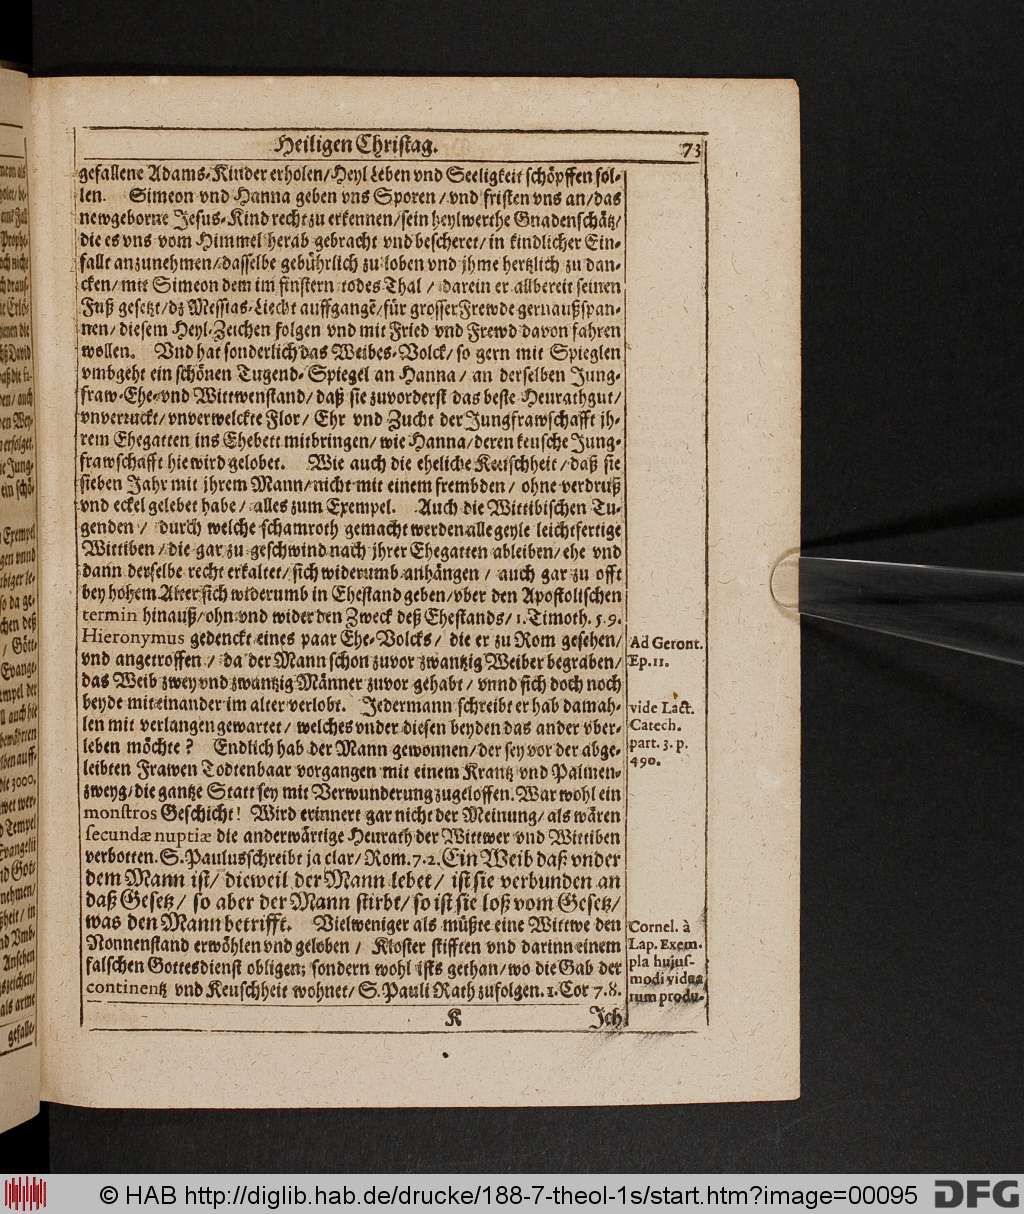 Heiligen Christag. 73
gefallene Adams-Kinder erholen/Heyl Leben vnd Seeligkeit schöpffen sol-
len. Simeon vnd Hanna geben vns Sporen/vnd fristen vns an/das
newgeborne Jesus-Kind recht zu erkennen/sein heylwerthe Gnadenschätz/
die es vns vom Himmel herab gebracht vnd bescheret/in kindlicher Ein-
fallt anzunehmen/dasselbe gebührlich zu loben vnd jhme hertzlich zu dan-
cken/mit Simeon dem im finstern todes Thal / darein er allbereit seinen
Fuß gesetzt/dz Messias-Liecht auffgangē/für grosser Frewde gern außspan-
nen/diesem Heyl-Zeichen folgen vnd mit Fried vnd Frewd davon fahren
wollen. Vnd hat sonderlich das Weibes-Volck/so gern mit Spieglen
vmbgeht ein schönen Tugend-Spiegel an Hanna/an derselben Jung-
fraw-Ehe-vnd Wittwenstand/daß sie zuvorderst das beste Heurathgut/
vnverruckt/vnverwelckte Flor/Ehr vnd Zucht der Jungfrawschafft jh-
rem Ehegatten ins Ehebett mitbringen/wie Hanna/deren keusche Jung-
frawschafft hie wird gelobet. Wie auch die eheliche Keuschheit/daß sie
sieben Jahr mit jhrem Mann/nicht mit einem frembden/ohne verdruß
vnd eckel gelebet habe/alles zum Exempel. Auch die Wittibischen Tu-
genden/ durch welche schamroth gemacht werden alle geyle leichtfertige
Wittiben/die gar zu geschwind nach jhrer Ehegatten ableiben/ehe vnd
dann derselbe recht erkaltet/sich widerumb anhängen / auch gar zu offt
bey hohem Alter sich widerumb in Ehestand geben/vber den Apostolischen
termin hinauß/ohn vnd wider den Zweck deß Ehestands/1. Timoth. 5.9.
Hieronymus gedenckt eines paar Ehe-Volcks/ die er zu Rom gesehen/
vnd angetroffen/ da der Mann schon zuvor zwantzig Weiber begraben/
das Weib zwey vnd zwantzig Männer zuvor gehabt/vnnd sich doch noch
beyde mit einander im alter verlobt. Jedermann schreibt er hab damah-
len mit verlangen gewartet/welches vnder diesen beyden das ander vber-
leben möchte? Endlich hab der Mann gewonnen/der sey vor der abge-
leibten Frawen Todtenbaar vorgangen mit einem Krantz vnd Palmen-
zweyg/die gantze Statt sey mit Verwunderung zugeloffen. War wohl ein
monstros Geschicht! Wird erinnert gar nicht der Meinung/als wären
secundæ nuptiæ die anderwärtige Heurath der Wittwer vnd Wittiben
verbotten. S. Paulus schreibt ja clar/Rom. 7.2. Ein Weib daß vnder
dem Mann ist/ dieweil der Mann lebet/ ist sie verbunden an
daß Gesetz/ so aber der Mann stirbt/so ist sie loß vom Gesetz/
was den Mann betrifft. Vielweniger als müßte eine Wittwe den
Nonnenstand erwöhlen vnd geloben/ Klöster stifften vnd darinn einem
falschen Gottesdienst obligen; sondern wohl ists gethan/wo die Gab der
continentz vnd Keuschheit wohnet/S. Pauli Rath zufolgen. 1. Cor 7.8.
K Ich
Ad Geront.
Ep. 11.
vide Lact.
Catech.
part. 3. p.
490.
Cornel. à
Lap. Exem-
pla hujus-
modi vidua
rum produ-
© HAB http://diglib.hab.de/drucke/188-7-theol-1s/start.htm?image=00095 DFG